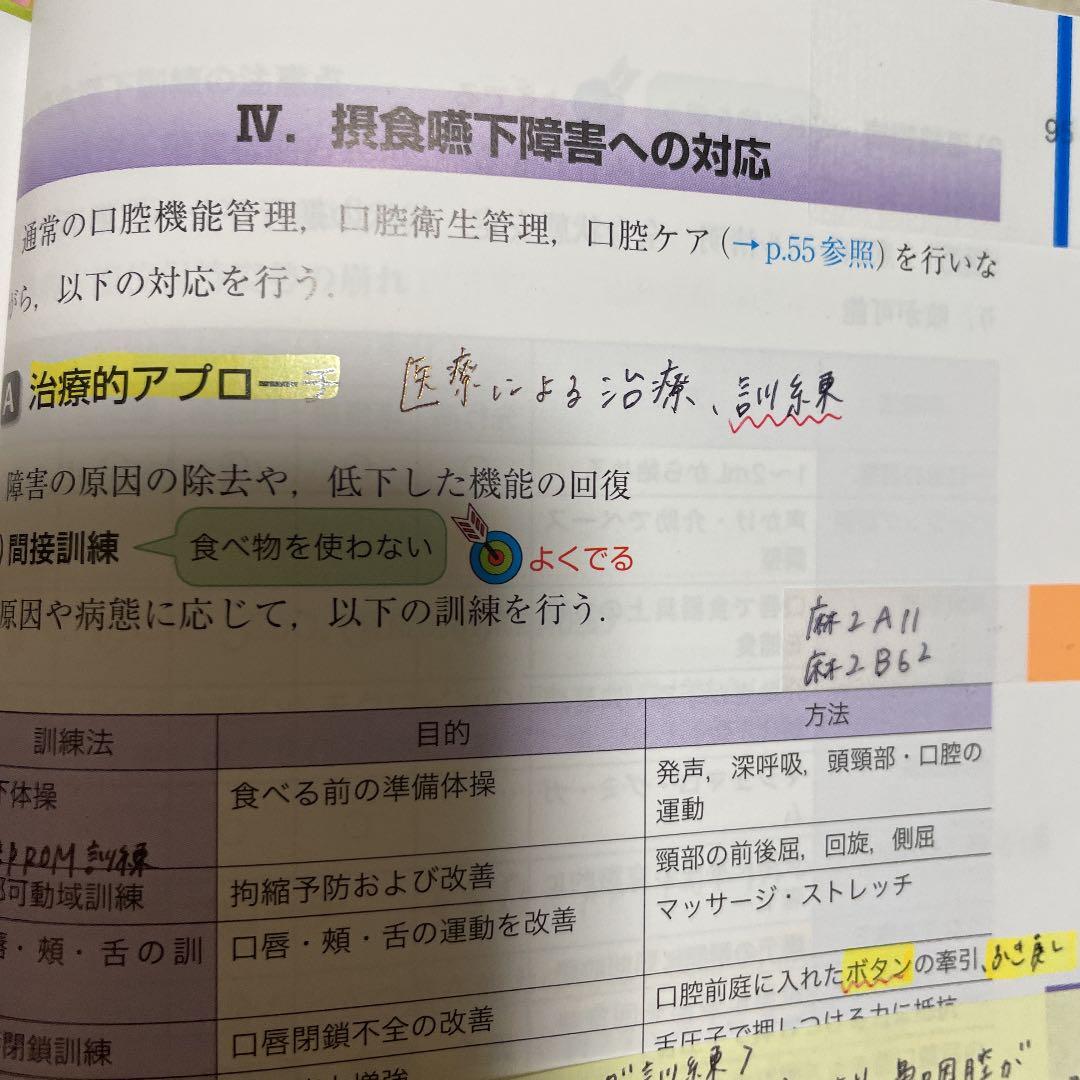 Ⅳ．摂食嚥下障害への対応
9
通常の口腔機能管理，口腔衛生管理，口腔ケア（→p.55参照）を行いな
がら，以下の対応を行う．
A 治療的アプローチ 医療による治療、訓練
障害の原因の除去や，低下した機能の回復
）間接訓練 食べ物を使わない よくでる
原因や病態に応じて，以下の訓練を行う．
麻2A11
麻2B62
訓練法 目的 方法
下体操 食べる前の準備体操 発声，深呼吸，頭頸部・口腔の
運動
ROM訓練
部可動域訓練 拘縮予防および改善 頸部の前後屈，回旋，側屈
唇・頰・舌の訓 口唇・頰・舌の運動を改善 マッサージ・ストレッチ
閉鎖訓練 口唇閉鎖不全の改善 口腔前庭に入れたボタンの牽引、ふき戻し
舌圧子で押しつける力に抵抗
増強
訓練？
咽腔が